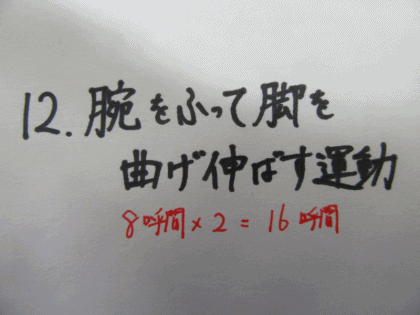 12. 腕をふって脚を
曲げ伸ばす運動
8呼間×2=16呼間